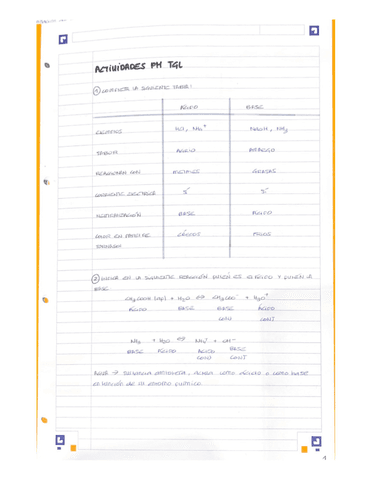 ACTIVIDADES PH TGL
① COMPLETA LA SIGUIENTE TABLA:
ÁCIDO BASE
EJEMPLOS HCl, NH₄⁺ NaOH, NH₃
SABOR AGRIO AMARGO
REACCIONA CON METALES GRASAS
CORRIENTE ELÉCTRICA SÍ SÍ
NEUTRALIZACIÓN BASE ÁCIDO
② INDICA EN LA SIGUIENTE REACCIÓN QUIÉN ES EL ÁCIDO Y QUIÉN LA
BASE
CH₃COOH (aq) + H₂O ⇌ CH₃COO⁻ + H₃O⁺
ÁCIDO BASE BASE ÁCIDO
CONJ CONJ
NH₃ + H₂O ⇌ NH₄⁺ + OH⁻
BASE ÁCIDO ÁCIDO BASE
CONJ CONJ
AGUA → SUSTANCIA ANFÓTERA, ACTÚA COMO ÁCIDO O COMO BASE
EN FUNCIÓN DE SU ENTORNO QUÍMICO
1